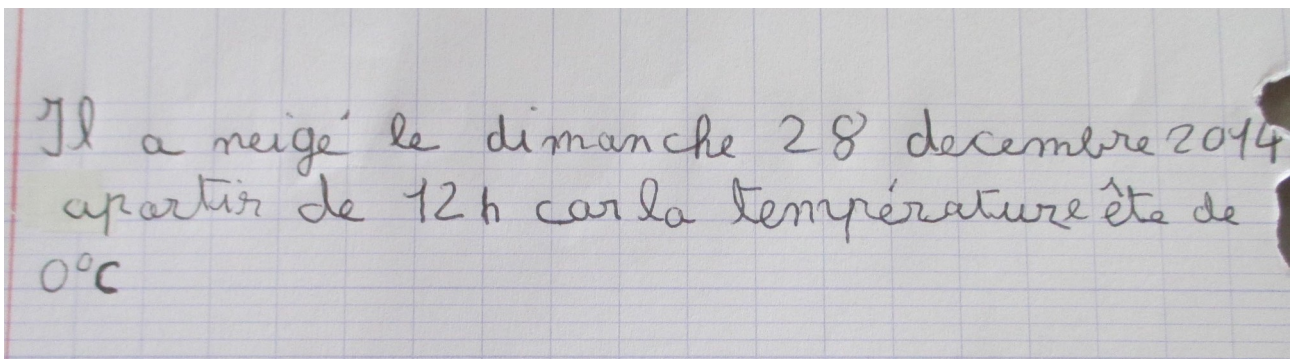 Il a neigé le dimanche 28 decembre 2014
apartir de 12h car la température ête de
0°C